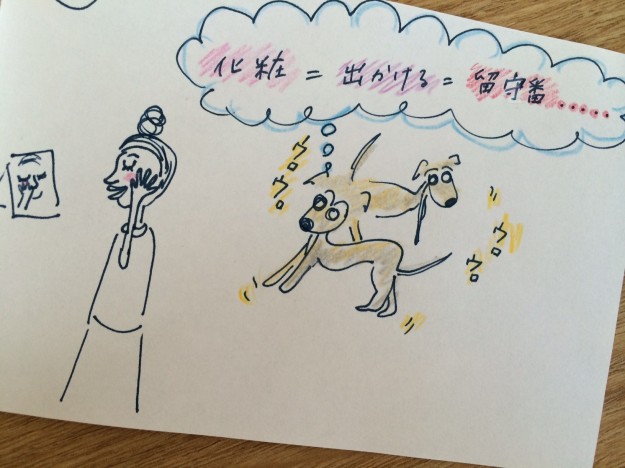 化粧＝出かける＝留守番……
ウロ
ウロ
ウロ
ウロ